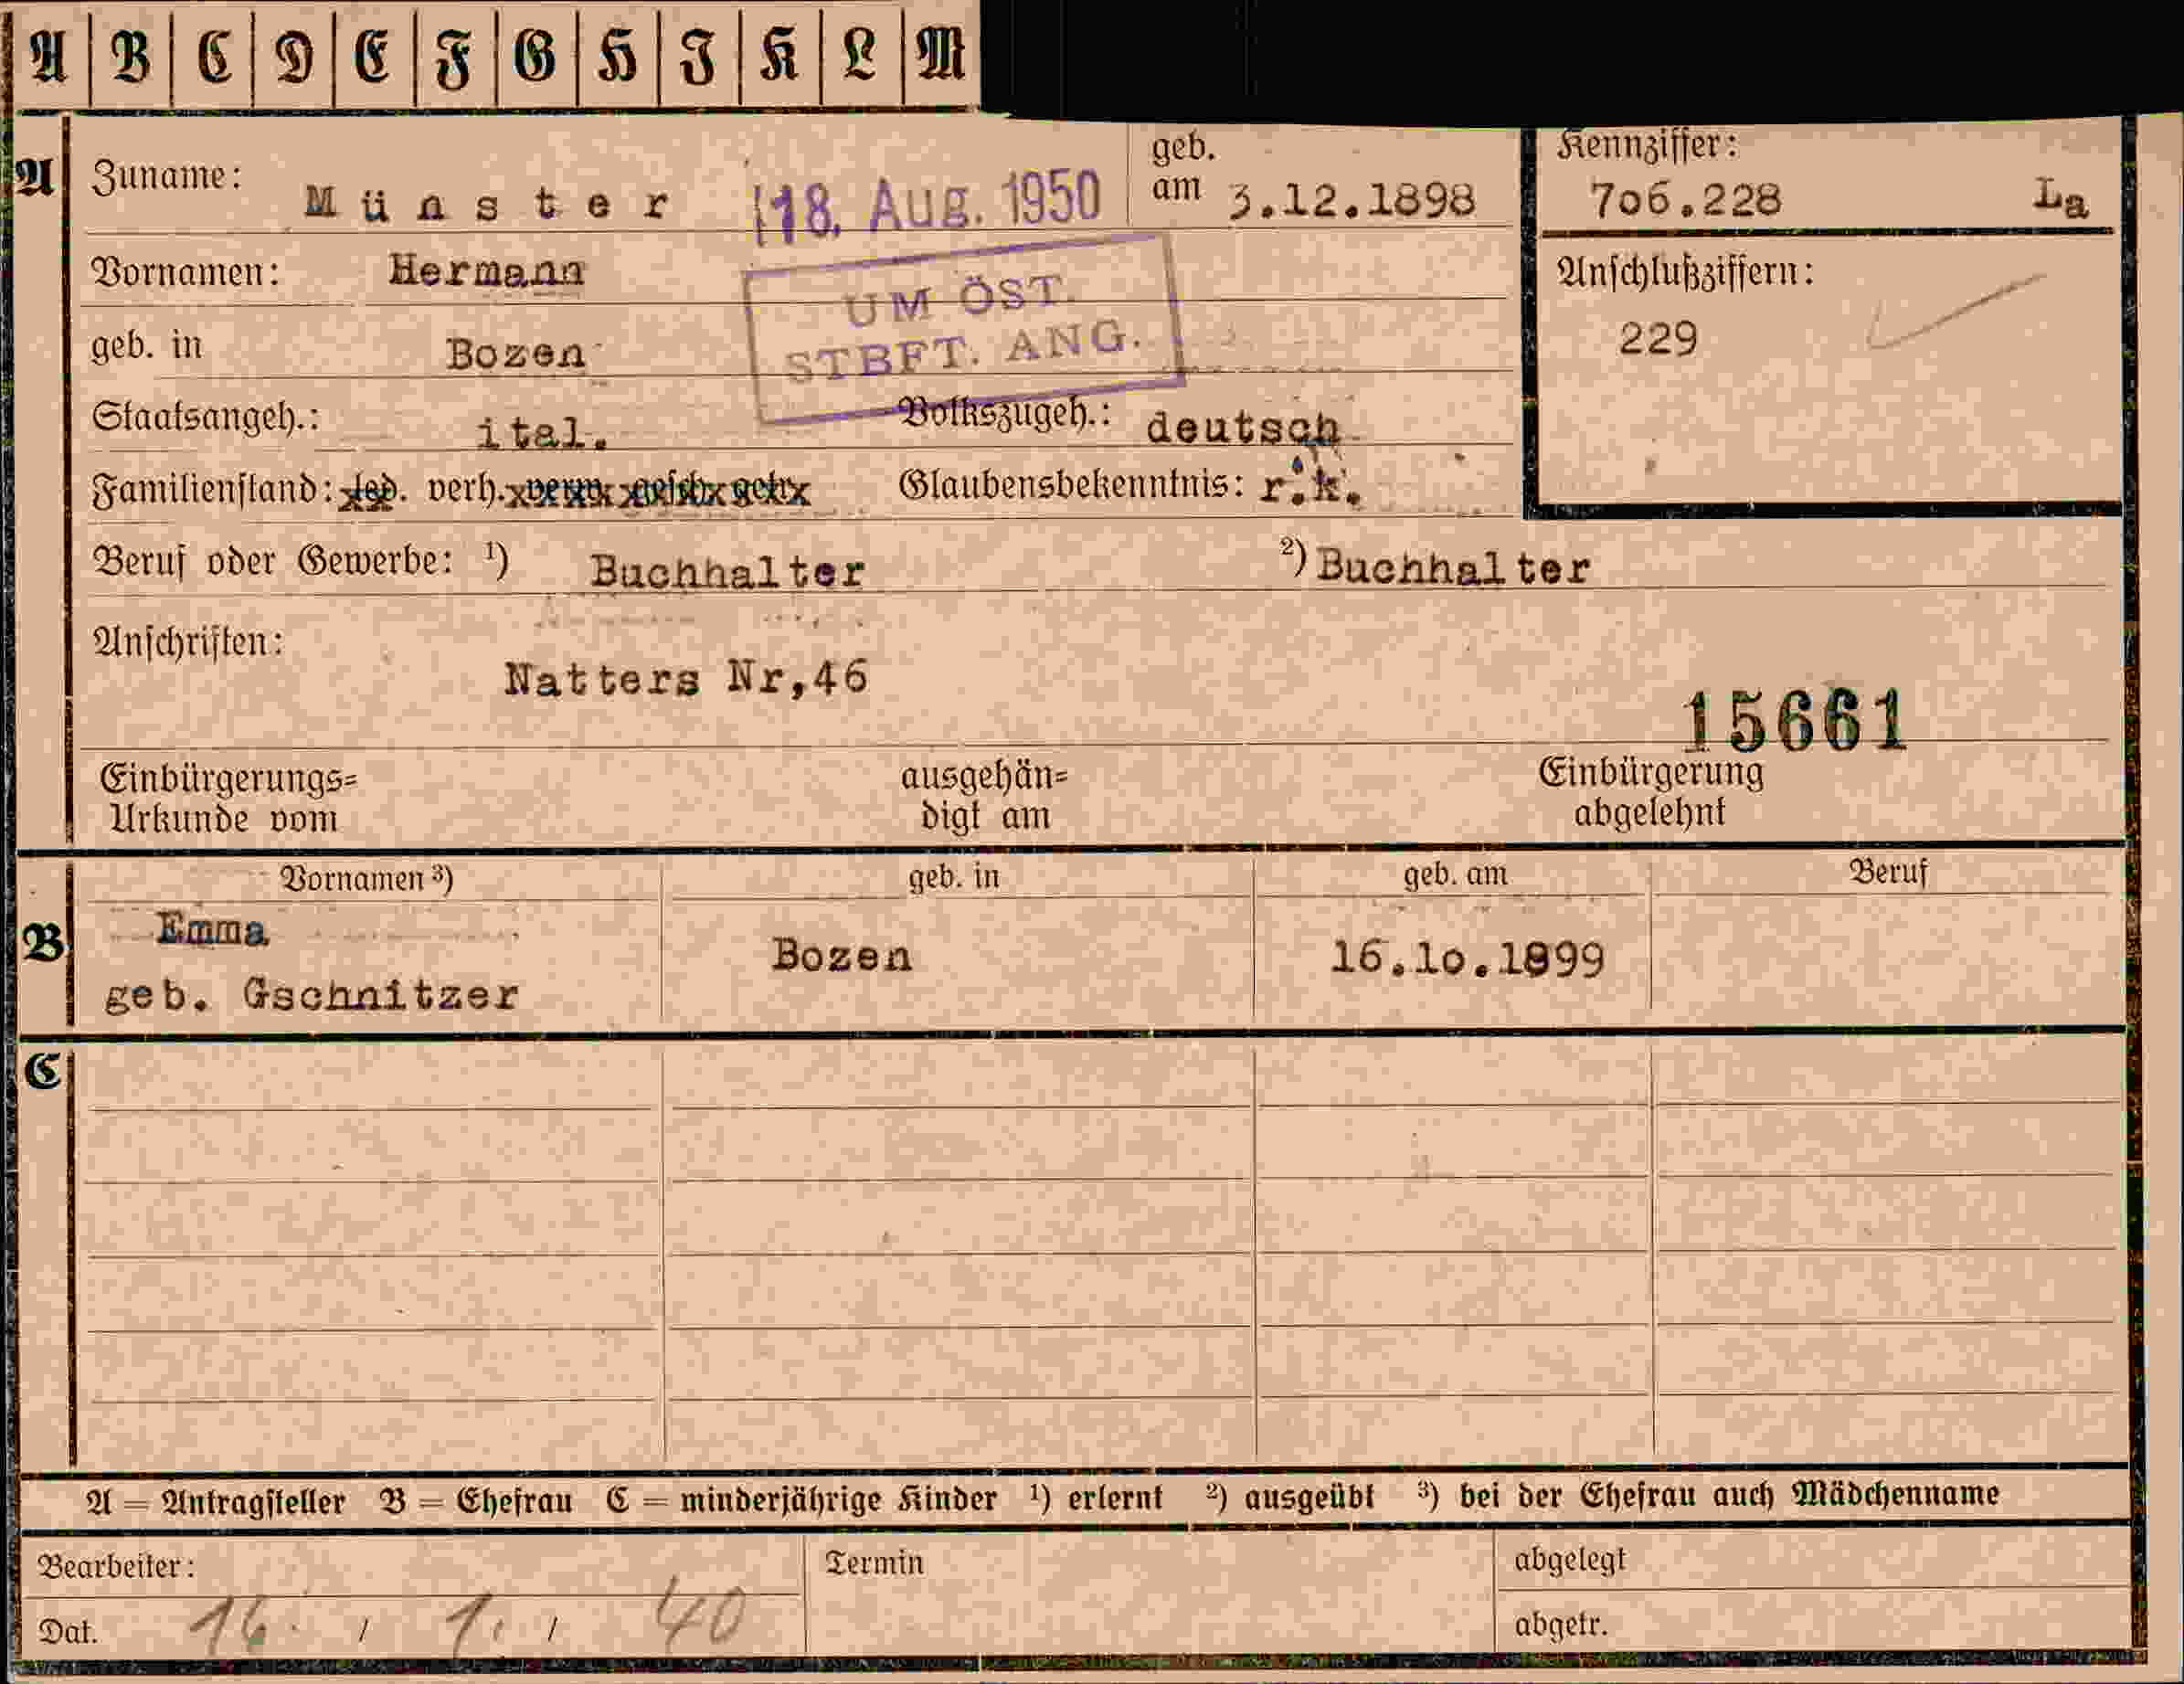 A B C D E F G H I K L M
A Zuname: Münster 18. Aug. 1950 geb. am 3.12.1898 Kennziffer: 706.228 La
Vornamen: Hermann
UM ÖST.
STBFT. ANG.
Anschlußziffern:
229
geb. in Bozen
Staatsangeh.: ital. Volkszugeh.: deutsch
Familienstand: led. verh. Glaubensbekenntnis: r.k.
Beruf oder Gewerbe: 1) Buchhalter 2) Buchhalter
Anschriften:
Natters Nr,46
15661
Einbürgerungs=
Urkunde vom
ausgehän=
digt am
Einbürgerung
abgelehnt
Vornamen 3) geb. in geb. am Beruf
B Emma
geb. Gschnitzer
Bozen 16.10.1899
C
A = Antragsteller B = Ehefrau C = minderjährige Kinder 1) erlernt 2) ausgeübt 3) bei der Ehefrau auch Mädchenname
Bearbeiter: Termin abgelegt
Dat. 16. / 1. / 40 abgetr.